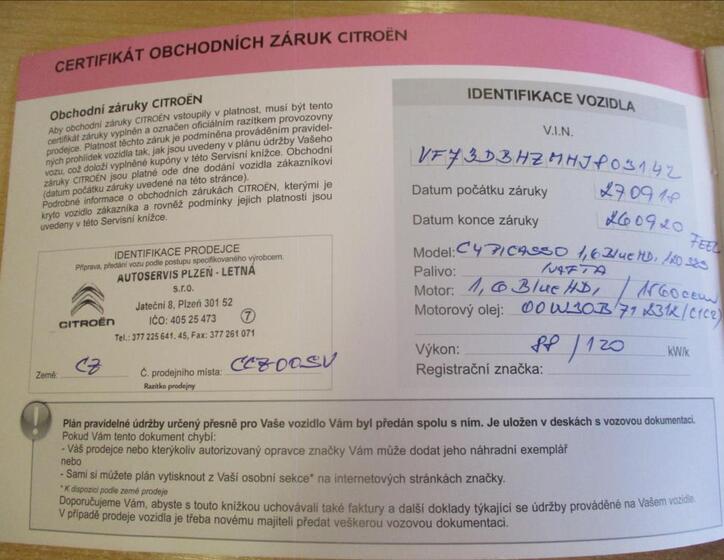 CERTIFIKÁT OBCHODNÍCH ZÁRUK CITROËN
Obchodní záruky CITROËN
Aby obchodní záruky CITROËN vstoupily v platnost, musí být tento
certifikát záruky vyplněn a označen oficiálním razítkem provozovny
prodejce. Platnost těchto záruk je podmíněna prováděním pravidel-
ných prohlídek vozidla tak, jak jsou uvedeny v plánu údržby Vašeho
vozu, což doloží vyplněné kupóny v této Servisní knížce. Obchodní
záruky CITROËN jsou platné ode dne dodání vozidla zákazníkovi
(datum počátku záruky uvedené na této stránce).
Podrobné informace o obchodních zárukách CITROËN, kterými je
kryto vozidlo zákazníka a rovněž podmínky jejich platnosti jsou
uvedeny v této Servisní knížce.
IDENTIFIKACE PRODEJCE
Příprava, předání vozu podle postupu specifikovaného výrobcem.
AUTOSERVIS PLZEŇ - LETNÁ
s.r.o.
Jateční 8, Plzeň 301 52
IČO: 405 25 473 7
CITROËN
Tel.: 377 225 641, 45, Fax: 377 261 071
Země: CZ Č. prodejního místa: CCZ00SV
Razítko prodejny
IDENTIFIKACE VOZIDLA
V.I.N.
VF73DBHZMHJ803142
Datum počátku záruky 270918
Datum konce záruky 260920
FEEL
Model: C4 PICASSO 1,6 BlueHDi 120 S&S
Palivo: NAFTA
Motor: 1,6 BlueHDi / 1560ccm
Motorový olej: 00W30B71 2312/(C1C2)
Výkon: 88 / 120 kW/k
Registrační značka:
Plán pravidelné údržby určený přesně pro Vaše vozidlo Vám byl předán spolu s ním. Je uložen v deskách s vozovou dokumentací.
Pokud Vám tento dokument chybí:
- Váš prodejce nebo kterýkoliv autorizovaný opravce značky Vám může dodat jeho náhradní exemplář
nebo
- Sami si můžete plán vytisknout z Vaší osobní sekce* na internetových stránkách značky.
* K dispozici podle země prodeje
Doporučujeme Vám, abyste s touto knížkou uchovávali také faktury a další doklady týkající se údržby prováděné na Vašem vozidle.
V případě prodeje vozidla je třeba novému majiteli předat veškerou vozovou dokumentaci.